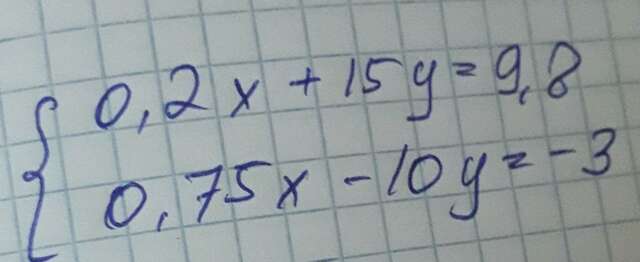 0,2x + 15y = 9,8
0,75x - 10y = -3